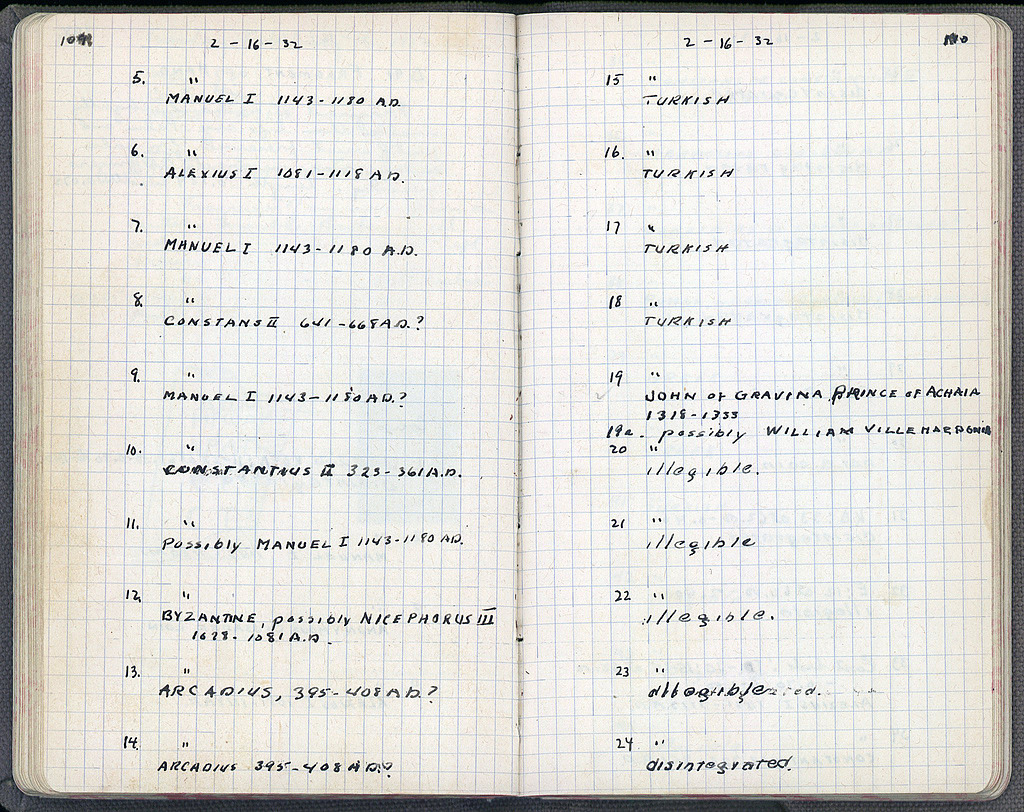 2 - 16 - 32
5. "
MANUEL I 1143 - 1180 A.D.
6. "
ALEXIUS I 1081 - 1118 A.D.
7. "
MANUEL I 1143 - 1180 A.D.
8. "
CONSTANS II 641 - 668 A.D.?
9. "
MANUEL I 1143 - 1180 A.D.?
10. "
CONSTANTIUS II 323 - 361 A.D.
11. "
Possibly MANUEL I 1143 - 1180 A.D.
12. "
BYZANTINE, possibly NICEPHORUS III
1078 - 1081 A.D.
13. "
ARCADIUS, 395 - 408 A.D.?
14. "
ARCADIUS 395 - 408 A.D.?
2 - 16 - 32
15 "
TURKISH
16. "
TURKISH
17 "
TURKISH
18 "
TURKISH
19 "
JOHN of GRAVINA, PRINCE of ACHAIA
1318 - 1333
19a. possibly WILLIAM
20 "
illegible.
21 "
illegible
22 "
illegible.
23 "
illegible
24 "
disintegrated.